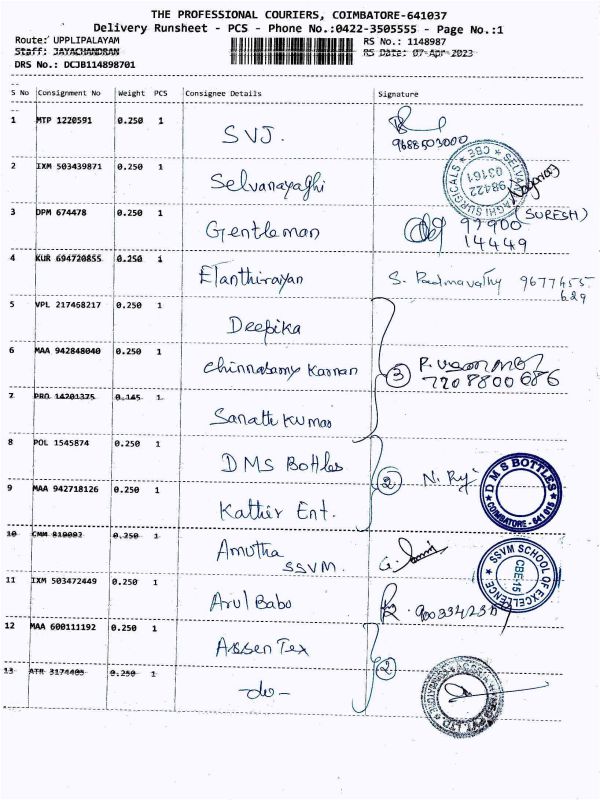 THE PROFESSIONAL COURIERS, COIMBATORE-641037
Delivery Runsheet - PCS - Phone No.:0422-3505555 - Page No.:1
Route: UPPLIPALAYAM RS No.: 1148987
Staff: JAYACHANDRAN RS Date: 07-Apr-2023
DRS No.: DCJB114898701
S No Consignment No Weight PCS Consignee Details Signature
1 MTP 1220591 0.250 1
SVJ.
9688503000
2 IXM 503439871 0.250 1
Selvanayaghi
CBE
98422
03161
3 DPM 674478 0.250 1
(SURESH)
Gentleman 97900
14449
4 KUR 694720855 0.250 1
Elanthirayan S. Padmavathy 9677455
629
5 VPL 217468217 0.250 1
Deepika
6 MAA 942848040 0.250 1
Chinnasamy Kannan 3
7208800686
7 PRO 14201375 0.145 1
Sanath Kumar
8 POL 1545874 0.250 1
DMS Bottles 2 N. Ryi
DMS BOTTLES
COIMBATORE - 641 015
9 MAA 942718126 0.250 1
Kathir Ent.
10 CMM 819082 0.250 1
Amutha
SSVM.
SSVM SCHOOL OF EXCELLENCE
CBE-15
11 IXM 503472449 0.250 1
Arul Babo
12 MAA 600111192 0.250 1
Assen Tex 2
13 ATR 3174405 0.250 1
-do-